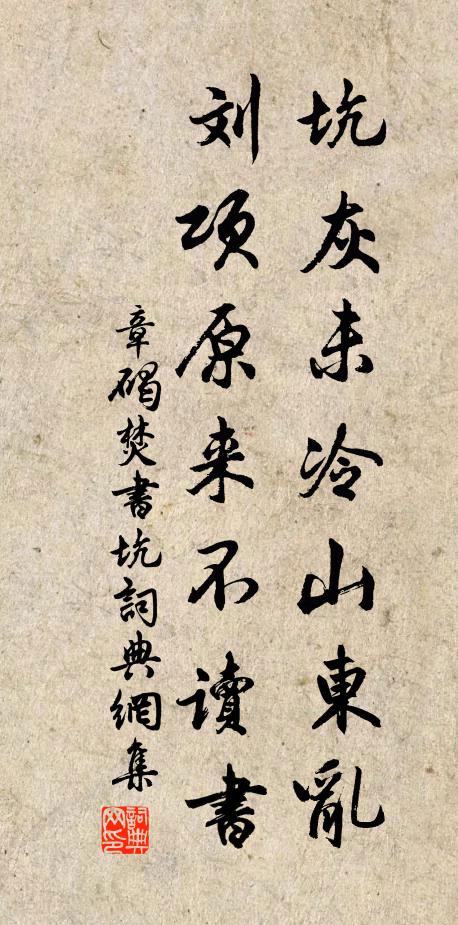 坑灰未冷山東亂
刘项原来不讀書
章碣焚書坑詞典網集
詞典网印